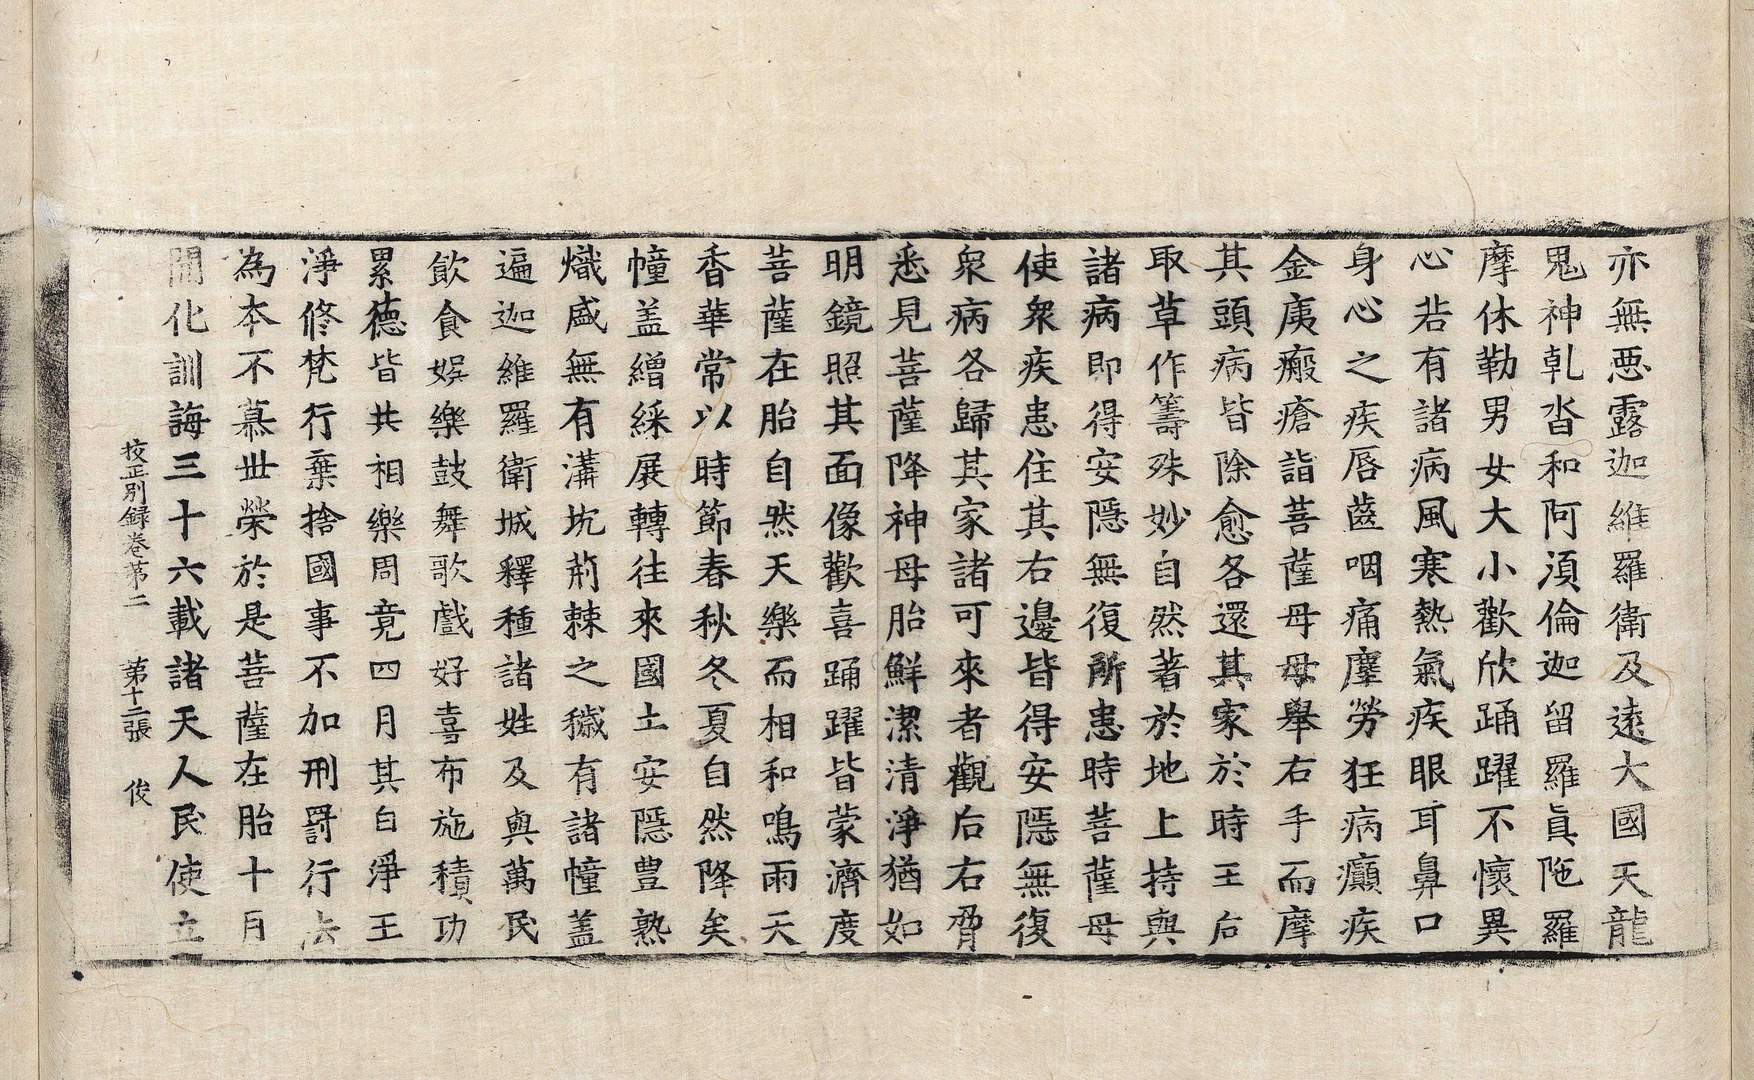 亦無惡露迦維羅衛及遠大國天龍
鬼神乹沓和阿湏倫迦留羅眞陁羅
摩休勒男女大小歡欣踊躍不懷異
心若有諸病風寒熱氣疾眼耳鼻口
身心之疾脣齒咽痛㿏勞狂病癲疾
金痍瘢瘡詣菩薩母母舉右手而摩
其頭病皆除愈各還其家於時王后
取草作籌殊妙自然著於地上持與
諸病即得安隱無復所患時菩薩母
使衆疾患住其右邊皆得安隱無復
衆病各歸其家諸可來者觀后右脅
悉見菩薩降神母胎鮮潔清淨猶如
明鏡照其面像歡喜踊躍皆蒙濟度
菩薩在胎自然天樂而相和鳴雨天
香華常以時節春秋冬夏自然降矣
幢盖繒綵展轉往來國土安隱豊熟
熾盛無有溝坑荊棘之穢有諸幢盖
遍迦維羅衛城釋種諸姓及與萬民
飮食娛樂鼓舞歌戲好喜布施積功
累德皆共相樂周竟四月其白淨王
淨修梵行棄捨國事不加刑罸行法
爲本不慕世榮於是菩薩在胎十月
開化訓誨三十六載諸天人民使立
校正別録卷第二　第十二張　俊